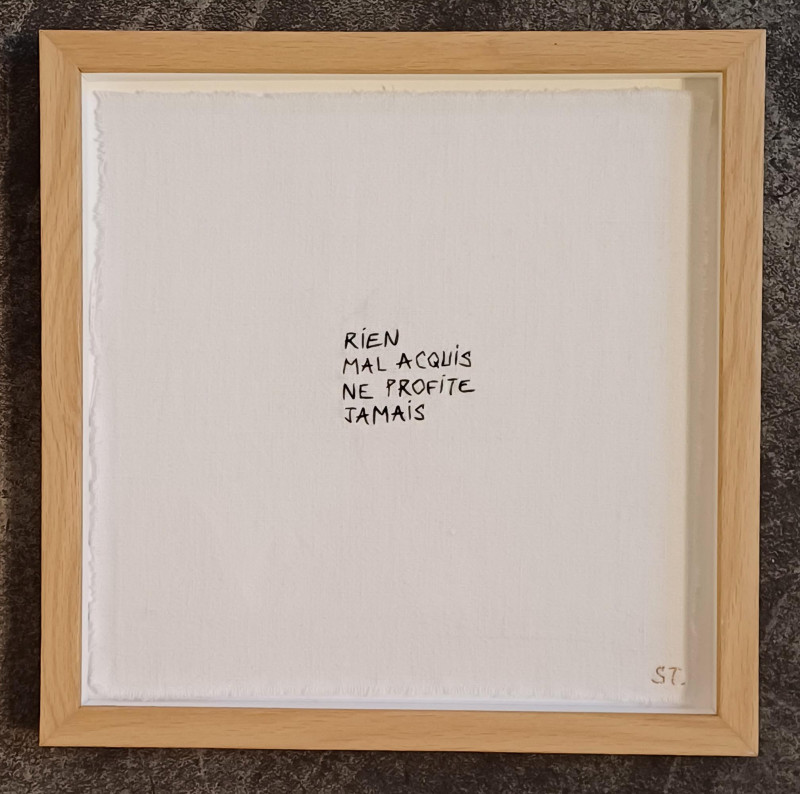 RiEN
MAL ACQUiS
NE PROFiTE
JAMAiS
ST.